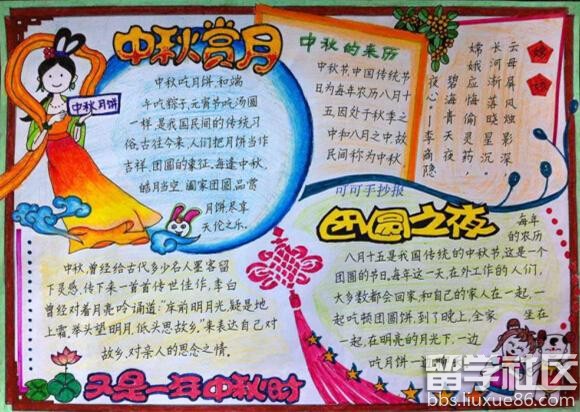 中秋赏月
中秋月饼
中秋吃月饼,和端
午吃粽子,元宵节吃汤圆
一样,是我国民间的传统习
俗。古往今来,人们把月饼当作
吉祥、团圆的象征。每逢中秋
皓月当空,阖家团圆,品赏
月饼尽享
天伦之乐。
中秋的来历
中秋节,中国传统节
日为每年农历八月十
五,因处于秋季之
中和八月之中,故
民间称为中秋
嫦娥
云母屏风烛影深,
长河渐落晓星沉。
嫦娥应悔偷灵药,
碧海青天夜
夜心。--李商隐
可可手抄报
团圆之夜
每年
的农历
八月十五是我国传统的中秋节,这是一个
团圆的节日,每年这一天,在外工作的人们,
大多数都会回家,和自己的家人在一起,一
起吃顿团圆饼,到了晚上,全家 坐在
一起,在明亮的月光下,一边
吃月饼一边
中秋,曾经给古代多少名人墨客留
下灵感,传下来一首首传世佳作,李白
曾经对着月亮吟诵道:“床前明月光,疑是地
上霜,举头望明月,低头思故乡。”来表达自己对
故乡、对亲人的思念之情。
又是一年中秋时
留学社区
bbs.liuxue86.com